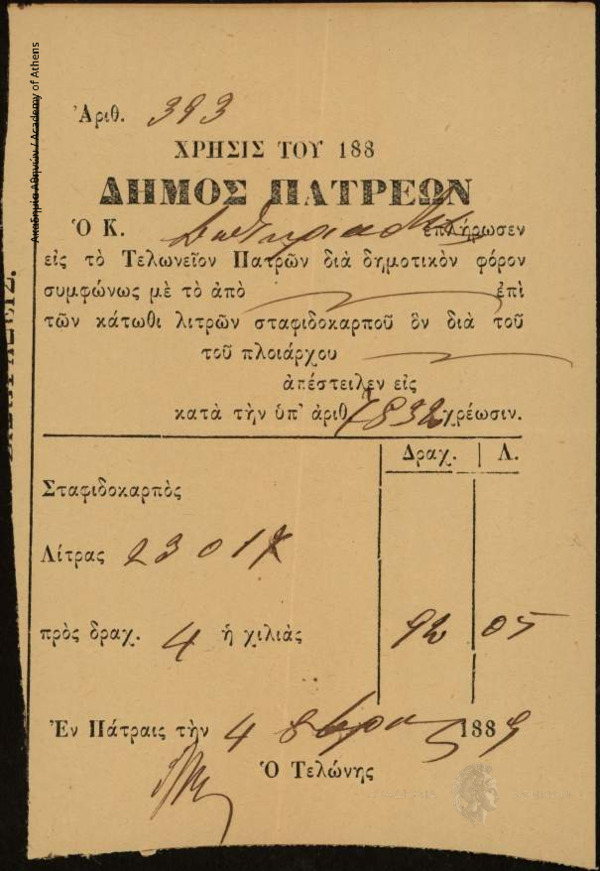 Ἀριθ. 393
ΧΡΗΣΙΣ ΤΟΥ 188
ΔΗΜΟΣ ΠΑΤΡΕΩΝ
Ὁ Κ. ἐπλήρωσεν
εἰς τὸ Τελωνεῖον Πατρῶν διὰ δημοτικὸν φόρον
συμφώνως μὲ τὸ ἀπὸ ἐπὶ
τῶν κάτωθι λιτρῶν σταφιδοκαρποῦ ὃν διὰ τοῦ
τοῦ πλοιάρχου
ἀπέστειλεν εἰς
κατὰ τὴν ὑπ' ἀριθ. 7832 χρέωσιν.
Δραχ. Λ.
Σταφιδοκαρπὸς
Λίτρας 23017
πρὸς δραχ. 4 ἡ χιλιὰς 92 05
Ἐν Πάτραις τὴν 4 8βρίου 1889
Ὁ Τελώνης
Ακαδημία Αθηνών / Academy of Athens